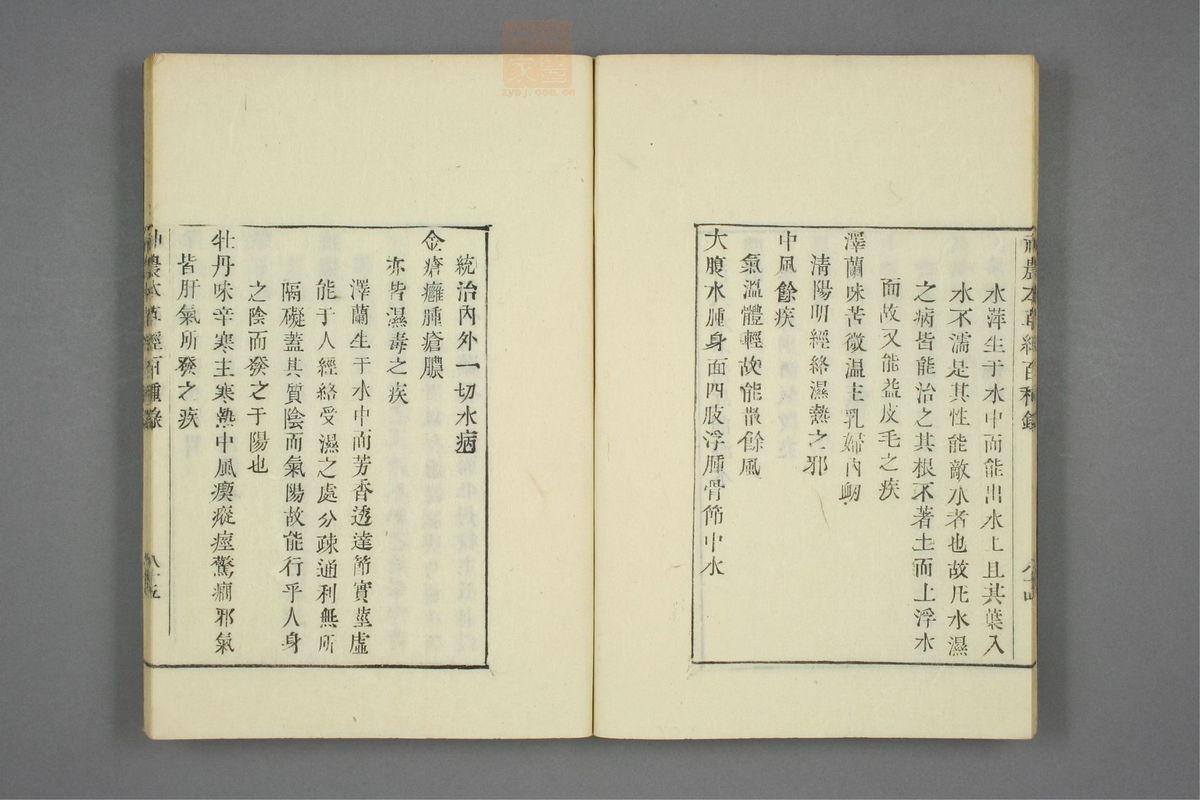 神農本草經百種錄
水萍生于水中而能出水上且其葉入
水不濡是其性能敵水者也故凡水濕
之病皆能治之其根不著土而上浮水
面故又能益皮毛之疾
澤蘭味苦微溫主乳婦內衂
清陽明經絡濕熱之邪
中風餘疾
氣溫體輕故能散餘風
大腹水腫身面四肢浮腫骨節中水
八十四
統治內外一切水病
金瘡癰腫瘡膿
亦皆濕毒之疾
澤蘭生于水中而芳香透達節實莖虛
能于人經絡受濕之處分疎通利無所
隔礙蓋其質陰而氣陽故能行乎人身
之陰而發之于陽也
牡丹味辛寒主寒熱中風瘈瘲痙驚癎邪氣
皆肝氣所發之疾
神農本草經百種錄
八十五
zysj.com.cn